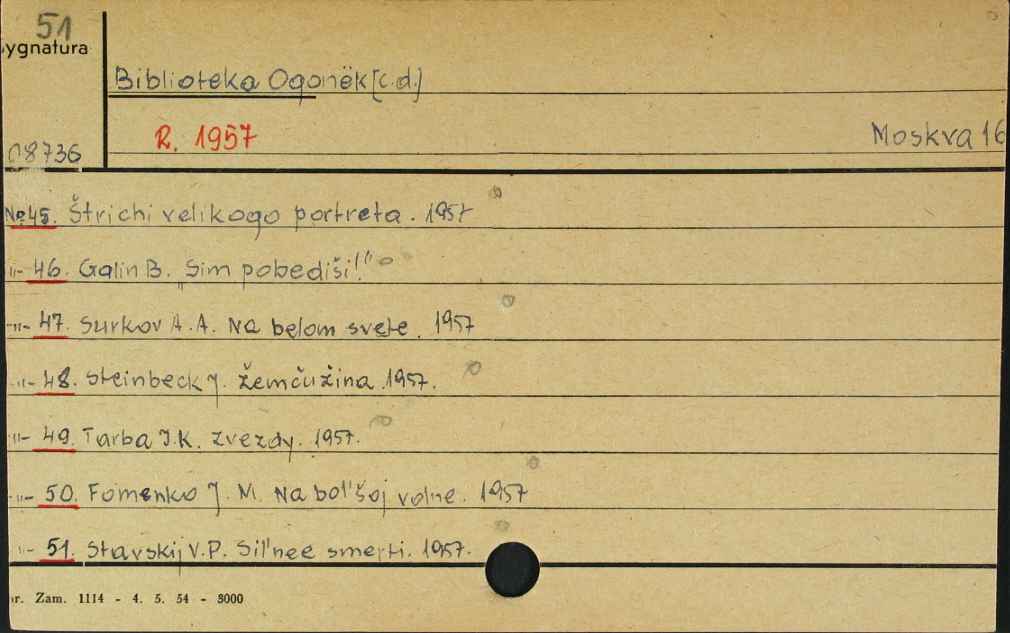 51
ygnatura
Biblioteka Ogonëk [c.d.]
R. 1957
Moskva 16
08736
№ 45. Štrichi velikogo portreta. 1957
-"- 46. Galin B. „Sim pobediši!"
-"- 47. Surkov A.A. Na belom svete. 1957
-"- 48. Steinbeck J. Žemčužina 1957.
-"- 49. Tarba I.K. Zvezdy. 1957.
-"- 50. Fomenko J. M. Na bol'šoj volne. 1957
-"- 51. Stavskij V.P. Sil'nee smerti. 1957.
r. Zam. 1114 - 4. 5. 54 - 3000